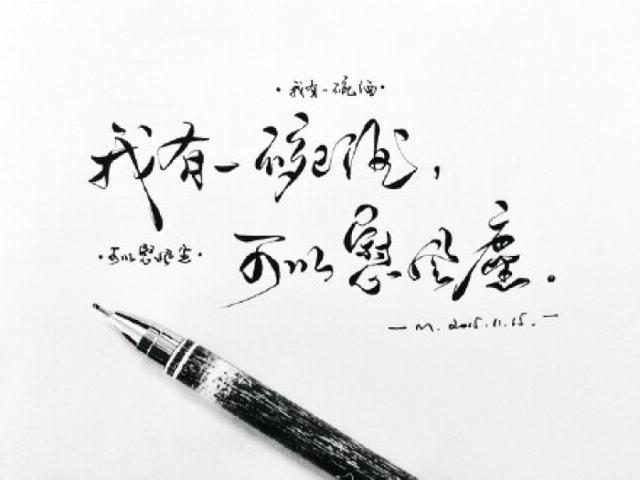 ·我有一碗酒·
我有一碗酒，
·可以慰风尘·
可以慰风尘。
— M. 2015.11.15. —